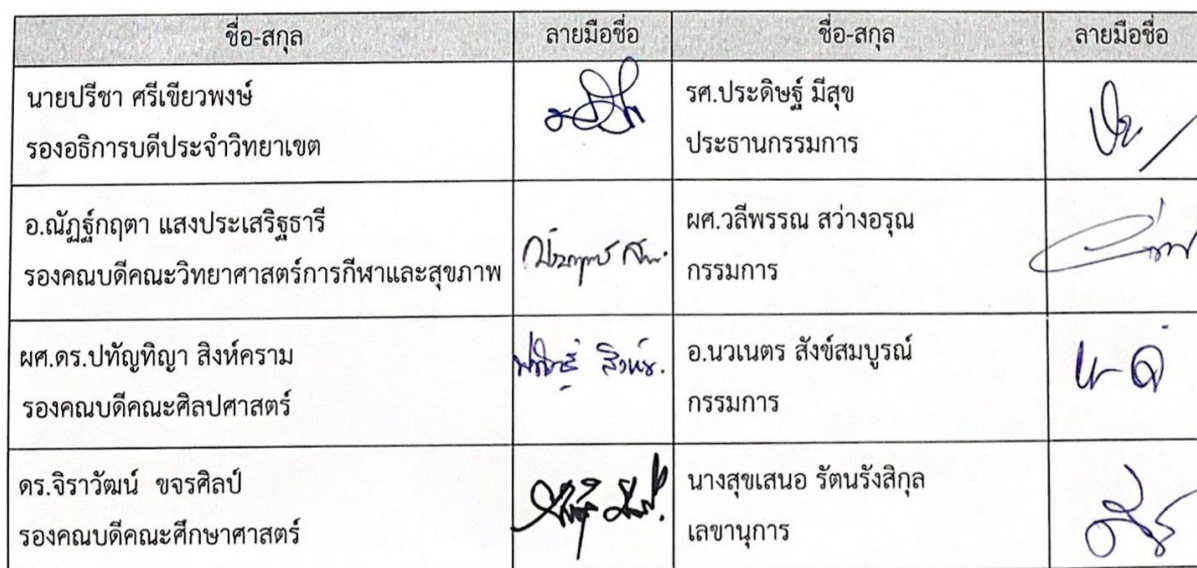 ชื่อ-สกุล ลายมือชื่อ ชื่อ-สกุล ลายมือชื่อ
นายปรีชา ศรีเขียวพงษ์
รองอธิการบดีประจำวิทยาเขต
รศ.ประดิษฐ์ มีสุข
ประธานกรรมการ
อ.ณัฏฐ์กฤตา แสงประเสริฐธารี
รองคณบดีคณะวิทยาศาสตร์การกีฬาและสุขภาพ
ผศ.วลีพรรณ สว่างอรุณ
กรรมการ
ผศ.ดร.ปทัญทิญา สิงห์คราม
รองคณบดีคณะศิลปศาสตร์
อ.นวเนตร สังข์สมบูรณ์
กรรมการ
ดร.จิราวัฒน์ ขจรศิลป์
รองคณบดีคณะศึกษาศาสตร์
นางสุขเสนอ รัตนรังสิกุล
เลขานุการ